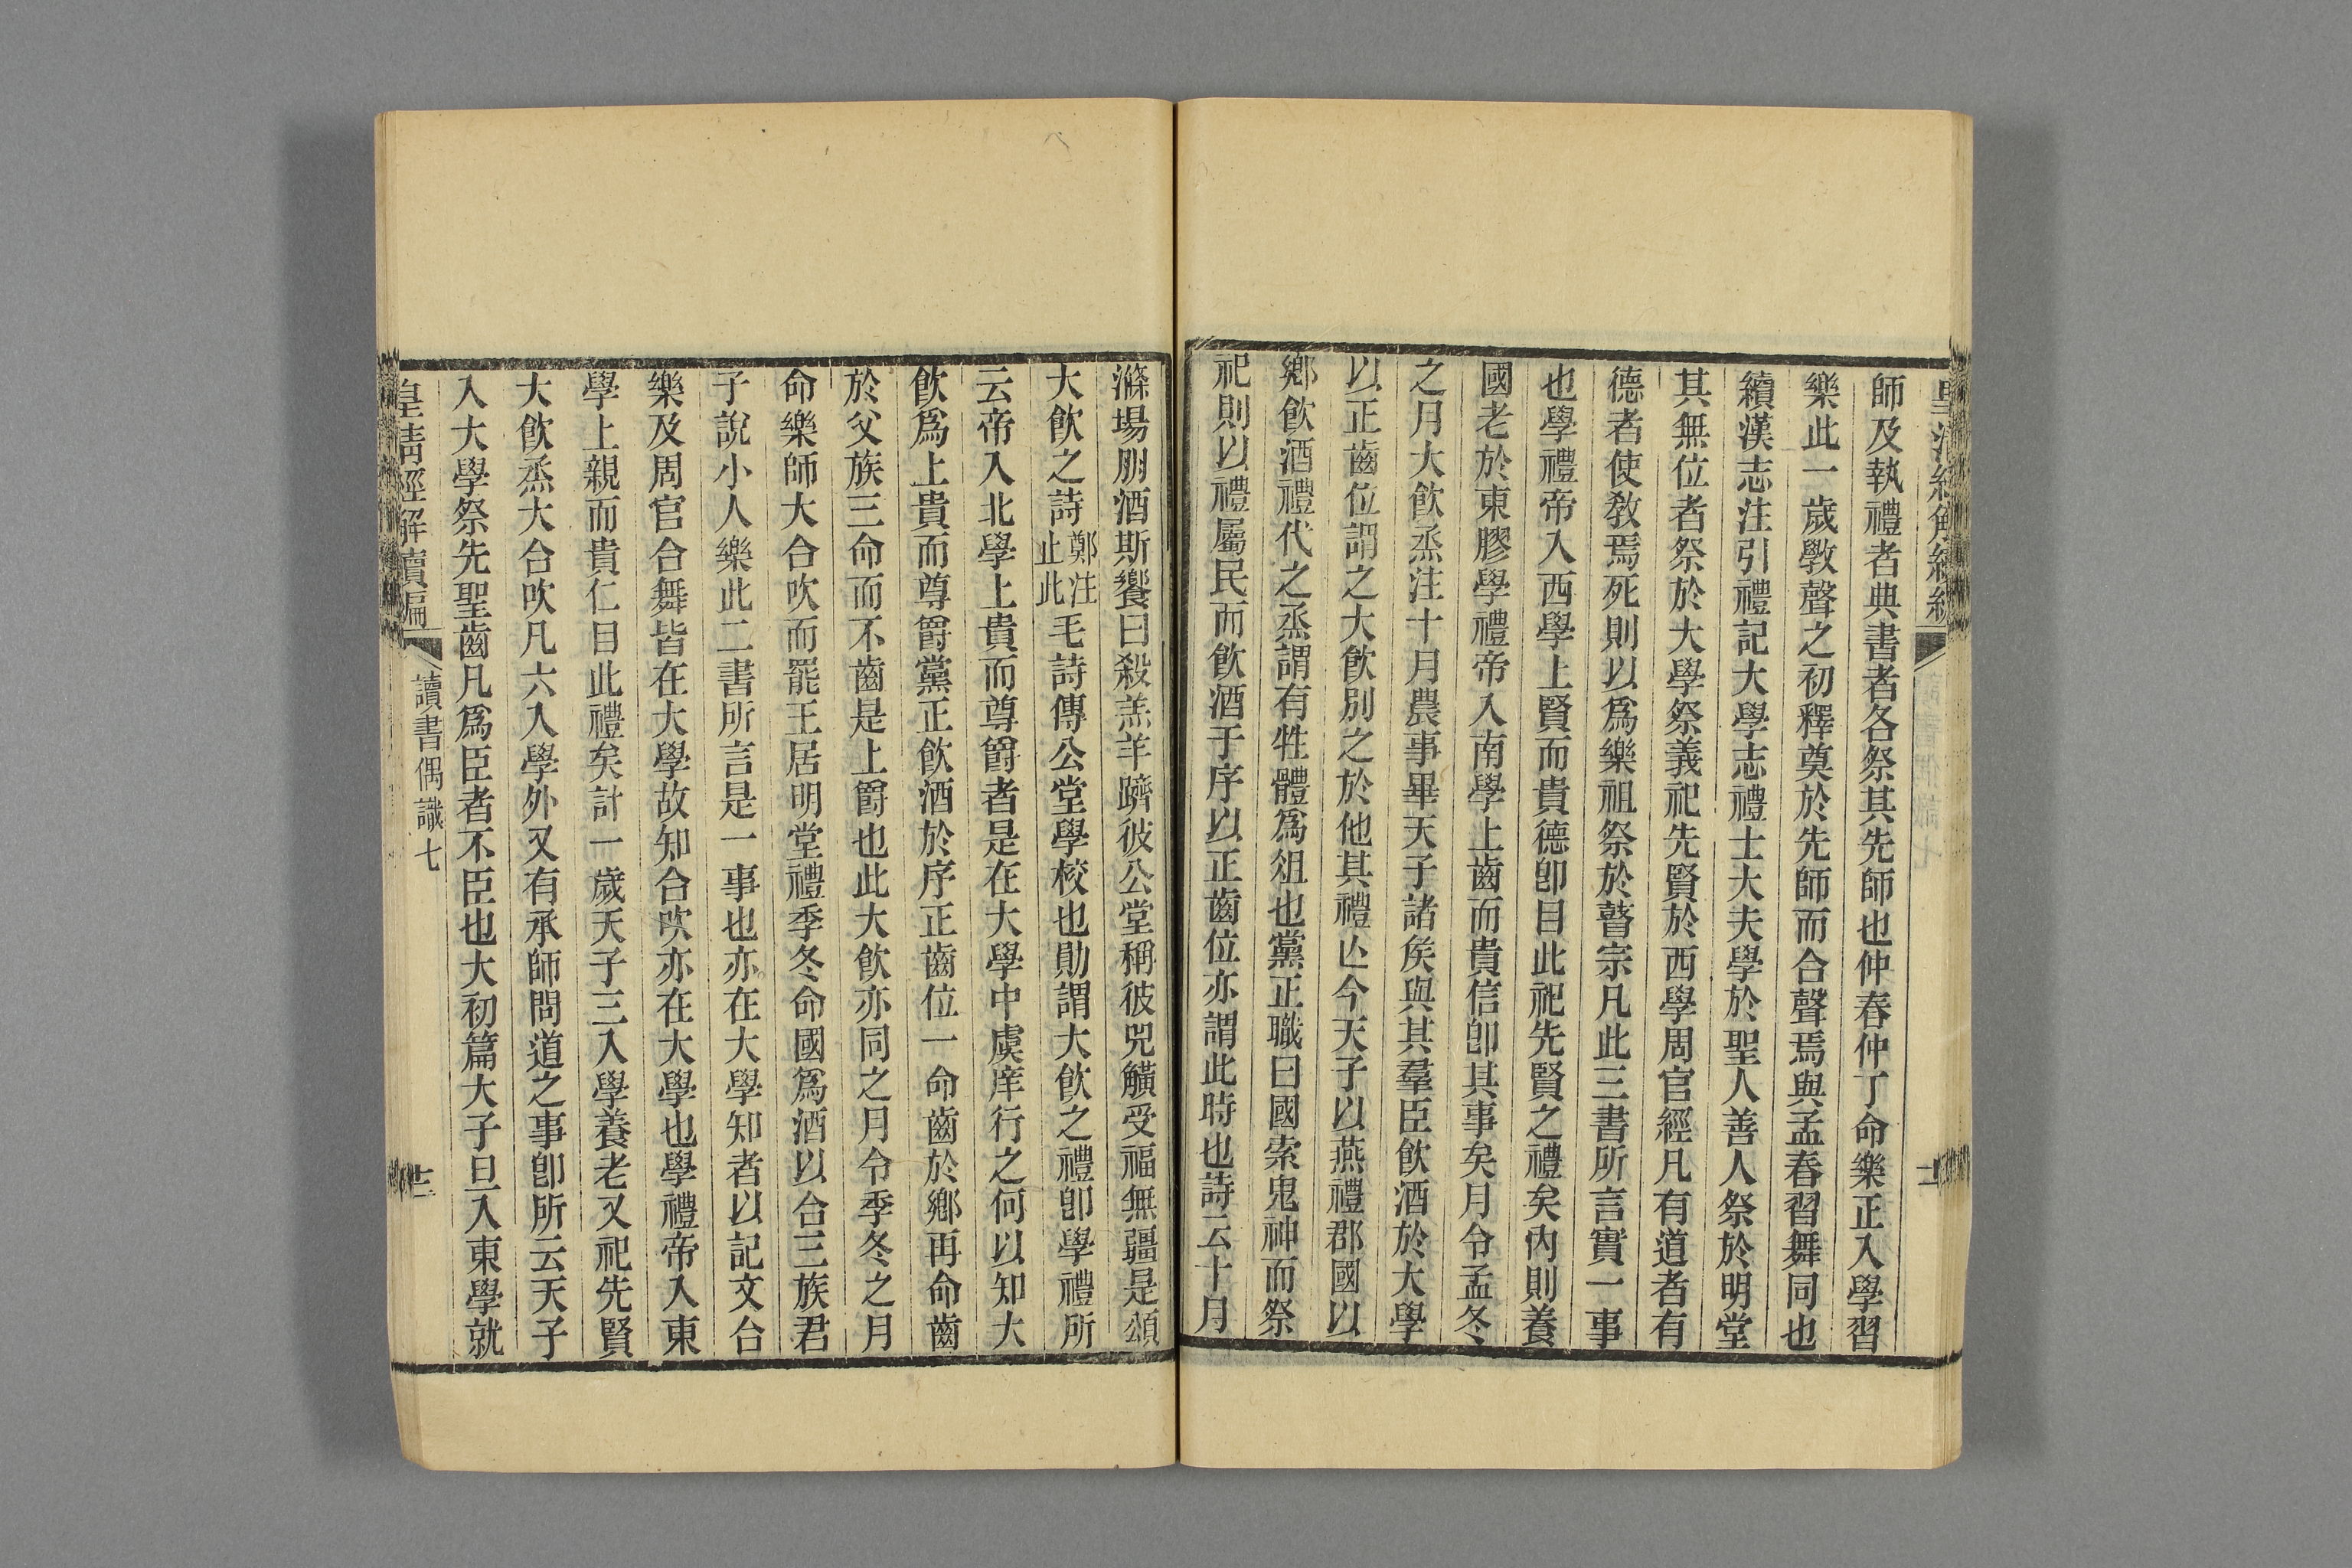 師及執禮者典書者各祭其先師也仲春仲丁命樂正入學習
樂此一歲斆聲之初釋奠於先師而合聲焉與孟春習舞同也
續漢志注引禮記大學志禮士大夫學於聖人善人祭於明堂
其無位者祭於大學祭義祀先賢於西學周官經凡有道者有
德者使敎焉死則以爲樂祖祭於瞽宗凡此三書所言實一事
也學禮帝入西學上賢而貴德卽目此祀先賢之禮矣內則養
國老於東膠學禮帝入南學上齒而貴信卽其事矣月令孟冬
之月大飮烝注十月農事畢天子諸矦與其羣臣飮酒於大學
以正齒位謂之大飮別之於他其禮亾今天子以燕禮郡國以
鄉飮酒禮代之烝謂有牲體爲俎也黨正職曰國索鬼神而祭
祀則以禮屬民而飮酒于序以正齒位亦謂此時也詩云十月
滌場朋酒斯饗曰殺羔羊躋彼公堂稱彼兕觵受福無疆是頌
大飮之詩鄭注止此毛詩傳公堂學校也勛謂大飮之禮卽學禮所
云帝入北學上貴而尊爵者是在大學中虞庠行之何以知大
飮爲上貴而尊爵黨正飮酒於序正齒位一命齒於鄉再命齒
於父族三命而不齒是上爵也此大飮亦同之月令季冬之月
命樂師大合吹而罷王居明堂禮季冬命國爲酒以合三族君
子說小人樂此二書所言是一事也亦在大學知者以記文合
樂及周官合舞皆在大學故知合吹亦在大學也學禮帝入東
學上親而貴仁目此禮矣計一歲天子三入學養老又祀先賢
大飮烝大合吹凡六入學外又有承師問道之事卽所云天子
入大學祭先聖齒凡爲臣者不臣也大初篇大子旦入東學就
皇淸經解續編
讀書偶識七